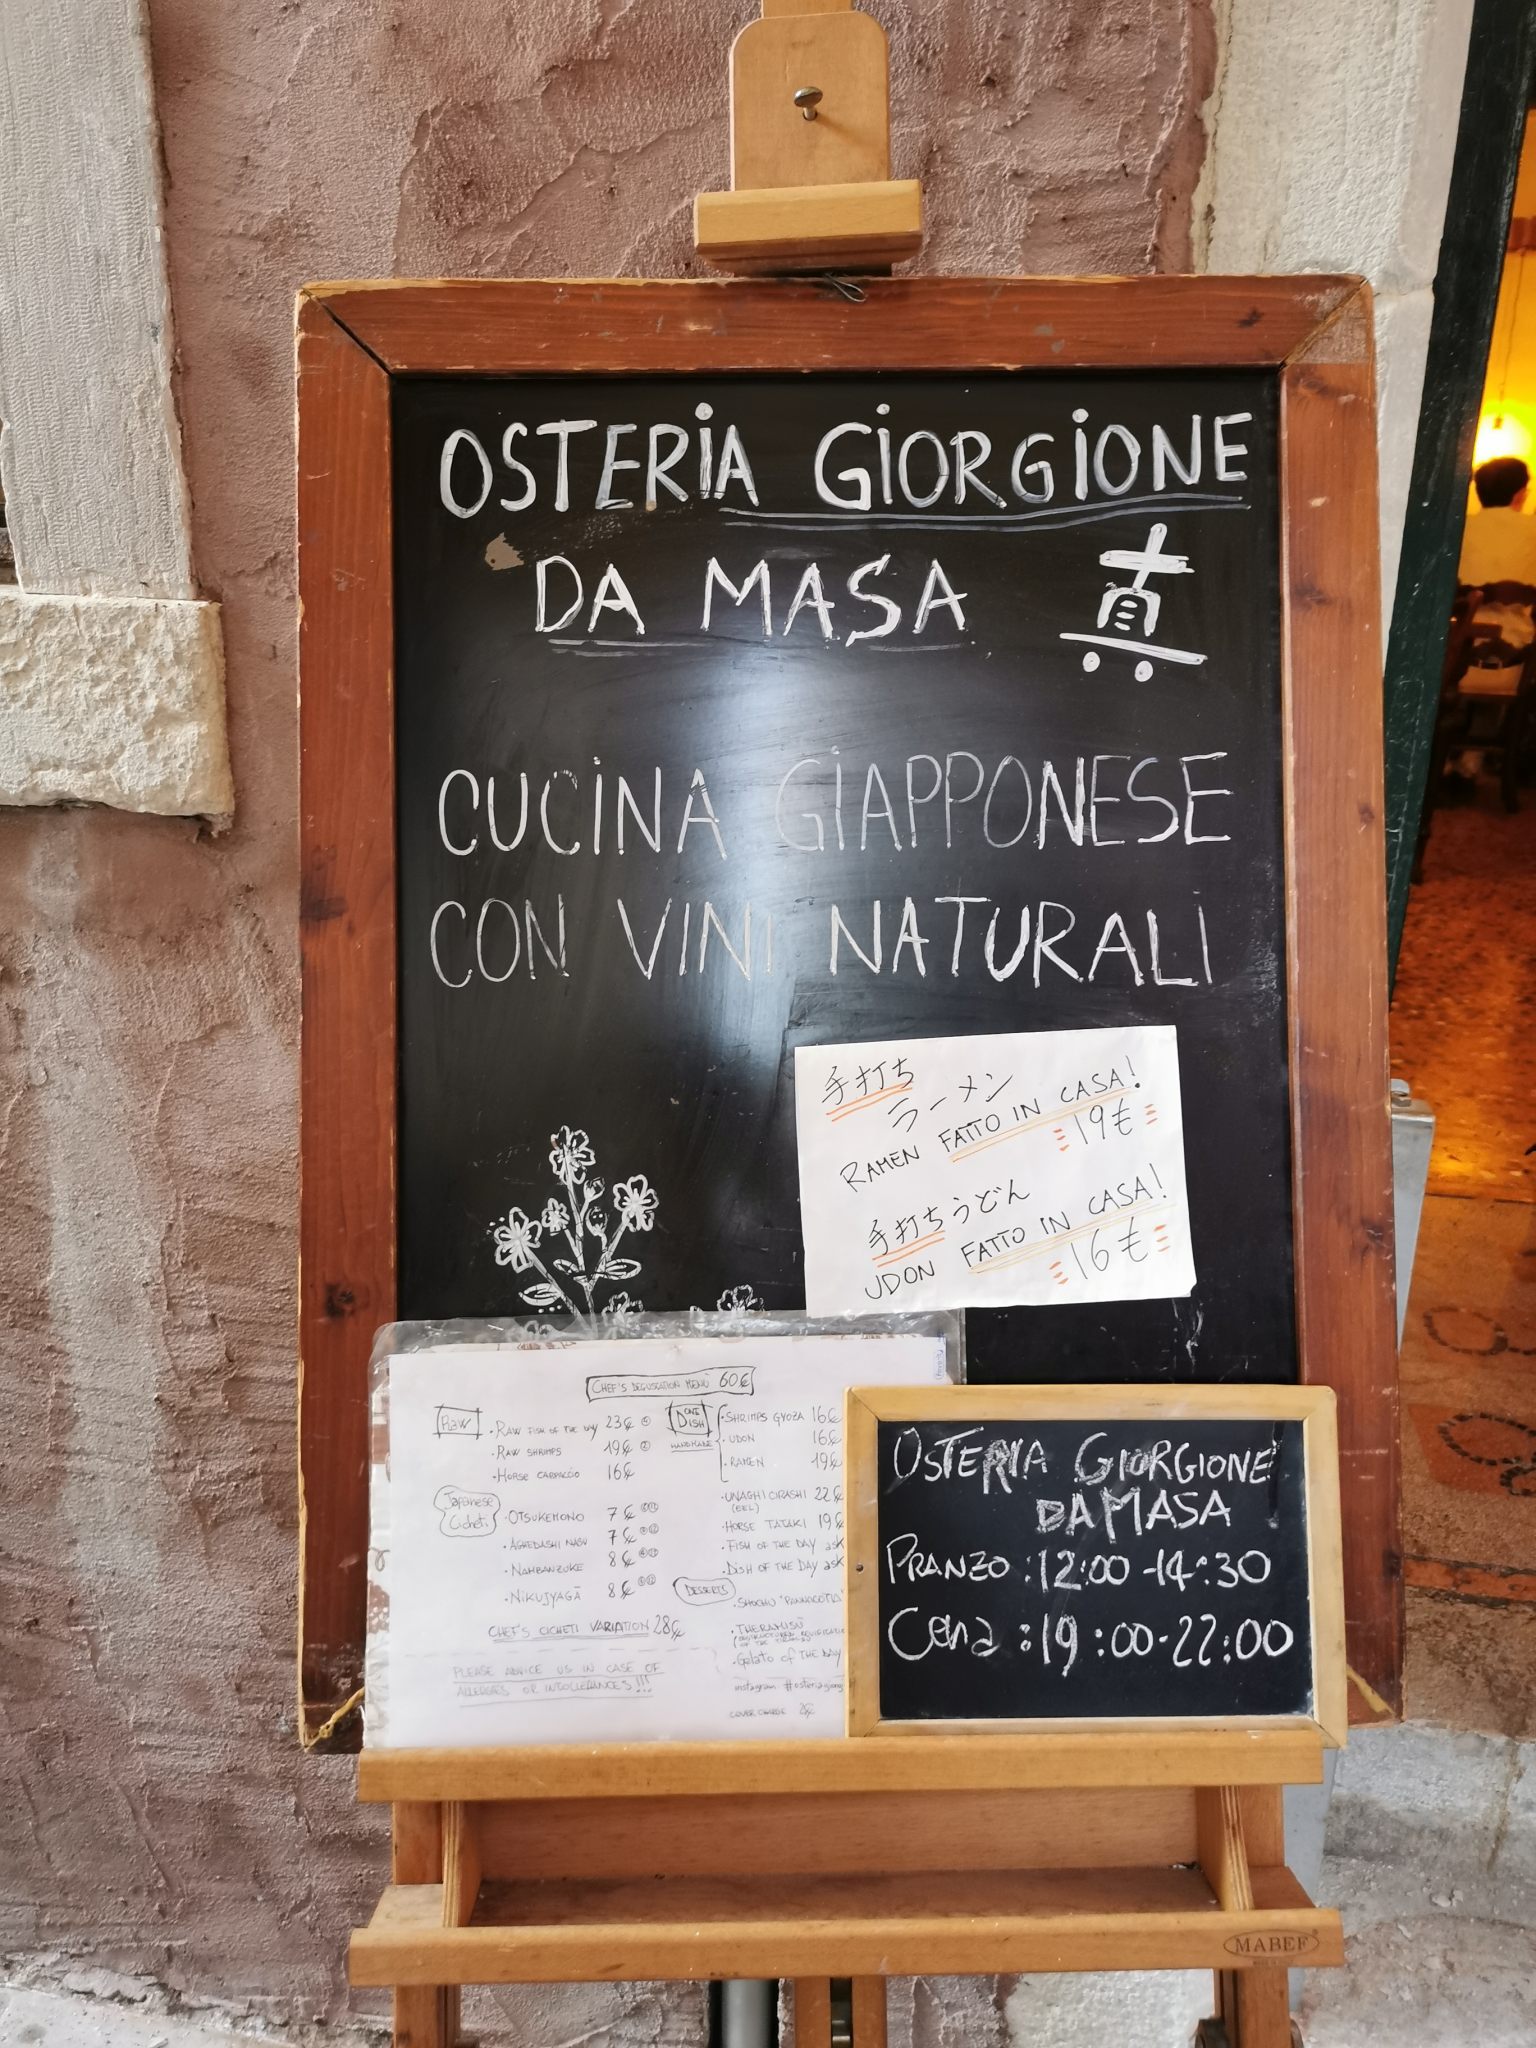 OSTERIA GIORGIONE
DA MASA 真
CUCINA GIAPPONESE
CON VINI NATURALI
手打ち
ラーメン
RAMEN FATTO IN CASA!
19€
手打ちうどん
UDON FATTO IN CASA!
16€
CHEF'S DEGUSTATION MENÙ 60€
RAW
• RAW FISH OF THE DAY 23€
• RAW SHRIMPS 19€
• HORSE CARPACCIO 16€
Japanese
Cicheti
• OTSUKEMONO 7€
• AGHEDASHI NASU 7€
• NAMBANZUKE 8€
• NIKUJYAGĀ 8€
CHEF'S CICHETI VARIATION 28€
PLEASE ADVICE US IN CASE OF
ALLERGIES OR INTOLLERANCES!!!
ONE
DISH
HANDMADE
• SHRIMPS GYOZA 16€
• UDON 16€
• RAMEN 19€
• UNAGHI CIRASHI 22€
(EEL)
• HORSE TATAKI 19€
• FISH OF THE DAY ask
• DISH OF THE DAY ask
DESSERTS
• SHOCHU "PANNACOTTA"
• THERAMISÙ
OF THE TIRAMISU
• Gelato OF THE DAY
instagram #osteriagiorg
COVER CHARGE 2€
OSTERIA GIORGIONE
DA MASA
PRANZO : 12:00 - 14:30
Cena : 19:00 - 22:00
MABEF